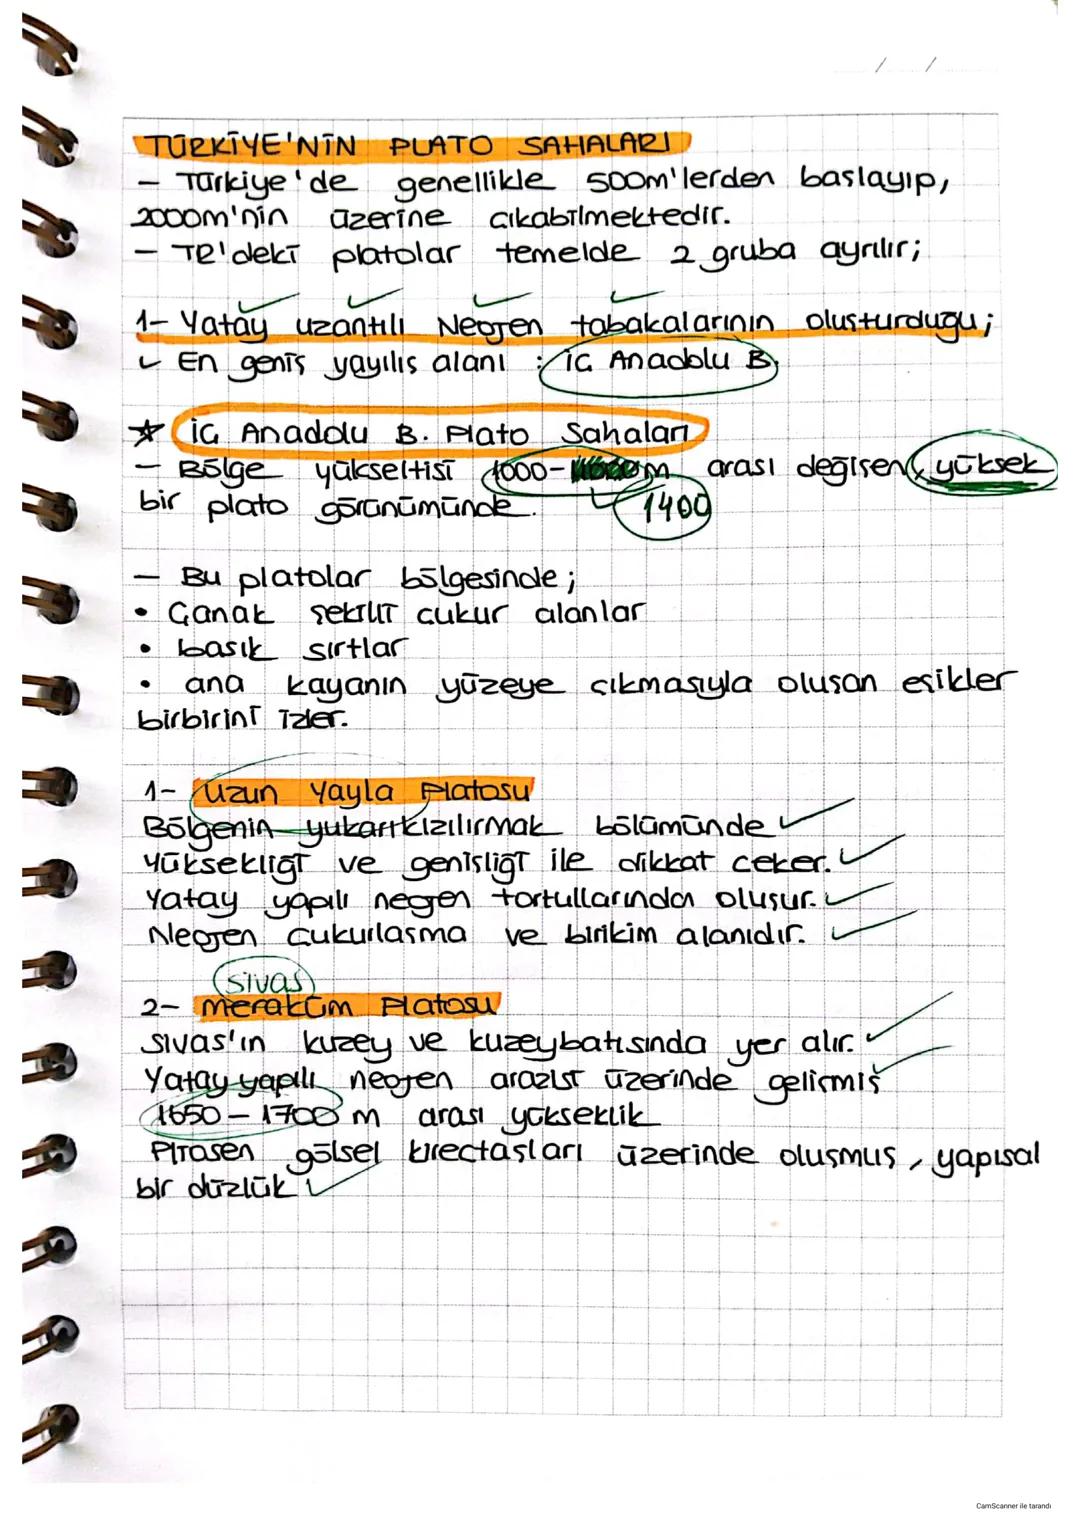 / /
TÜRKİYE'NİN PLATO SAHALARI
- Türkiye'de genellikle 500m'lerden başlayıp,
2000m'nin üzerine çıkabilmektedir.
- TR'deki platolar temelde 2 gruba ayrılır;
1- Yatay uzantılı Neojen tabakalarının oluşturduğu;
✓ En geniş yayılış alanı : İÇ Anadolu B.
☆ İÇ Anadolu B. Plato Sahaları
- Bölge yükseltisi 1000- m arası değişen, yüksek
bir plato görünümünde. 1400
- Bu platolar bölgesinde;
• Çanak şekilli çukur alanlar
• basık sırtlar
• ana kayanın yüzeye çıkmasıyla oluşan eşikler
birbirini izler.
1- Uzun Yayla Platosu
Bölgenin yukarı kızılırmak bölümünde ✓
Yüksekliği ve genişliği ile dikkat çeker. ✓
Yatay yapılı neojen tortullarından oluşur. ✓
Neojen çukurlaşma ve birikim alanıdır. ✓
Sivas
2- meraküm Platosu
Sivas'ın kuzey ve kuzeybatısında yer alır. ✓
Yatay yapılı neojen arazisi üzerinde gelişmiş ✓
1650 - 1700 m arası yükseklik
Pliosen gölsel kireçtaşları üzerinde oluşmuş, yapısal
bir düzlük ✓
CamScanner ile tarandı